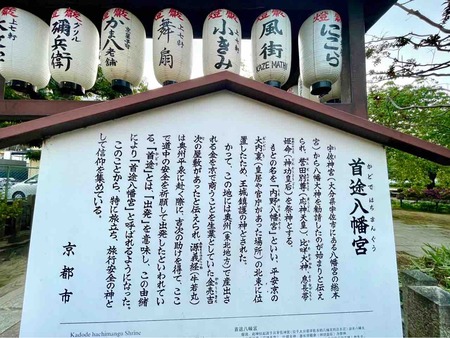 献燈
上七軒
彌兵衛
かま八老舗
献燈
上七軒
舞扇
献燈
小きみ
献燈
風街
KAZE MATI
献燈
にこら
首途八幡宮
かどではちまんぐう
宇佐神宮(大分県宇佐市にある八幡宮の総本
宮)から八幡大神を勧請したのが始まりと伝え
られ、誉田別尊(応神天皇)、比咩大神、息長帯
姫命(神功皇后)を祭神とする。
もとの名を「内野八幡宮」といい、平安京の
大内裏(皇居や官庁があった場所)の北東に位
置したため、王城鎮護の神とされた。
かつて、この地には奥州(東北地方)で産出さ
れる金を京で商うことを生業としていた金売吉
次の屋敷があったと伝えられ、源義経(牛若丸)
は奥州平泉に赴く際に、吉次の助けを得て、ここ
で道中の安全を祈願して出発したといわれてい
る。「首途」とは、「出発」を意味し、この由緒
により「首途八幡宮」と呼ばれるようになった。
このことから、特に旅立ち、旅行安全の神と
して信仰を集めている。
京都市
Kadode hachimangu Shrine
首途八幡宮